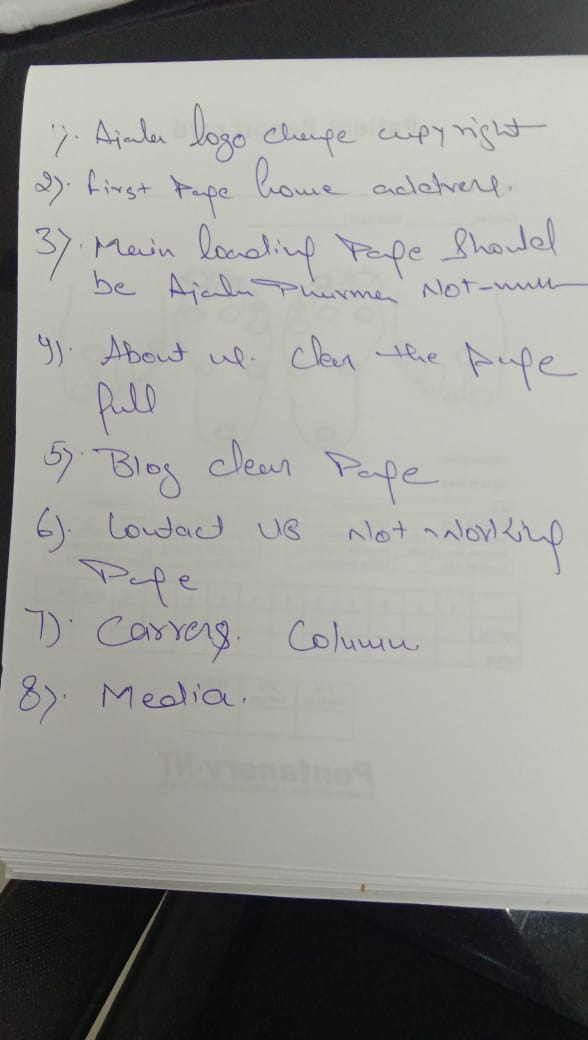 1). Ajalu logo change copyright
2). First Page home address.
3). Main loading Page Should
be Ajalu Pharma Not-null
4). About us. Clear the Page
full
5). Blog clear Page
6). Contact US Not Working
Page
7). Carrers. Column
8). Media.
Pentanerv-NT